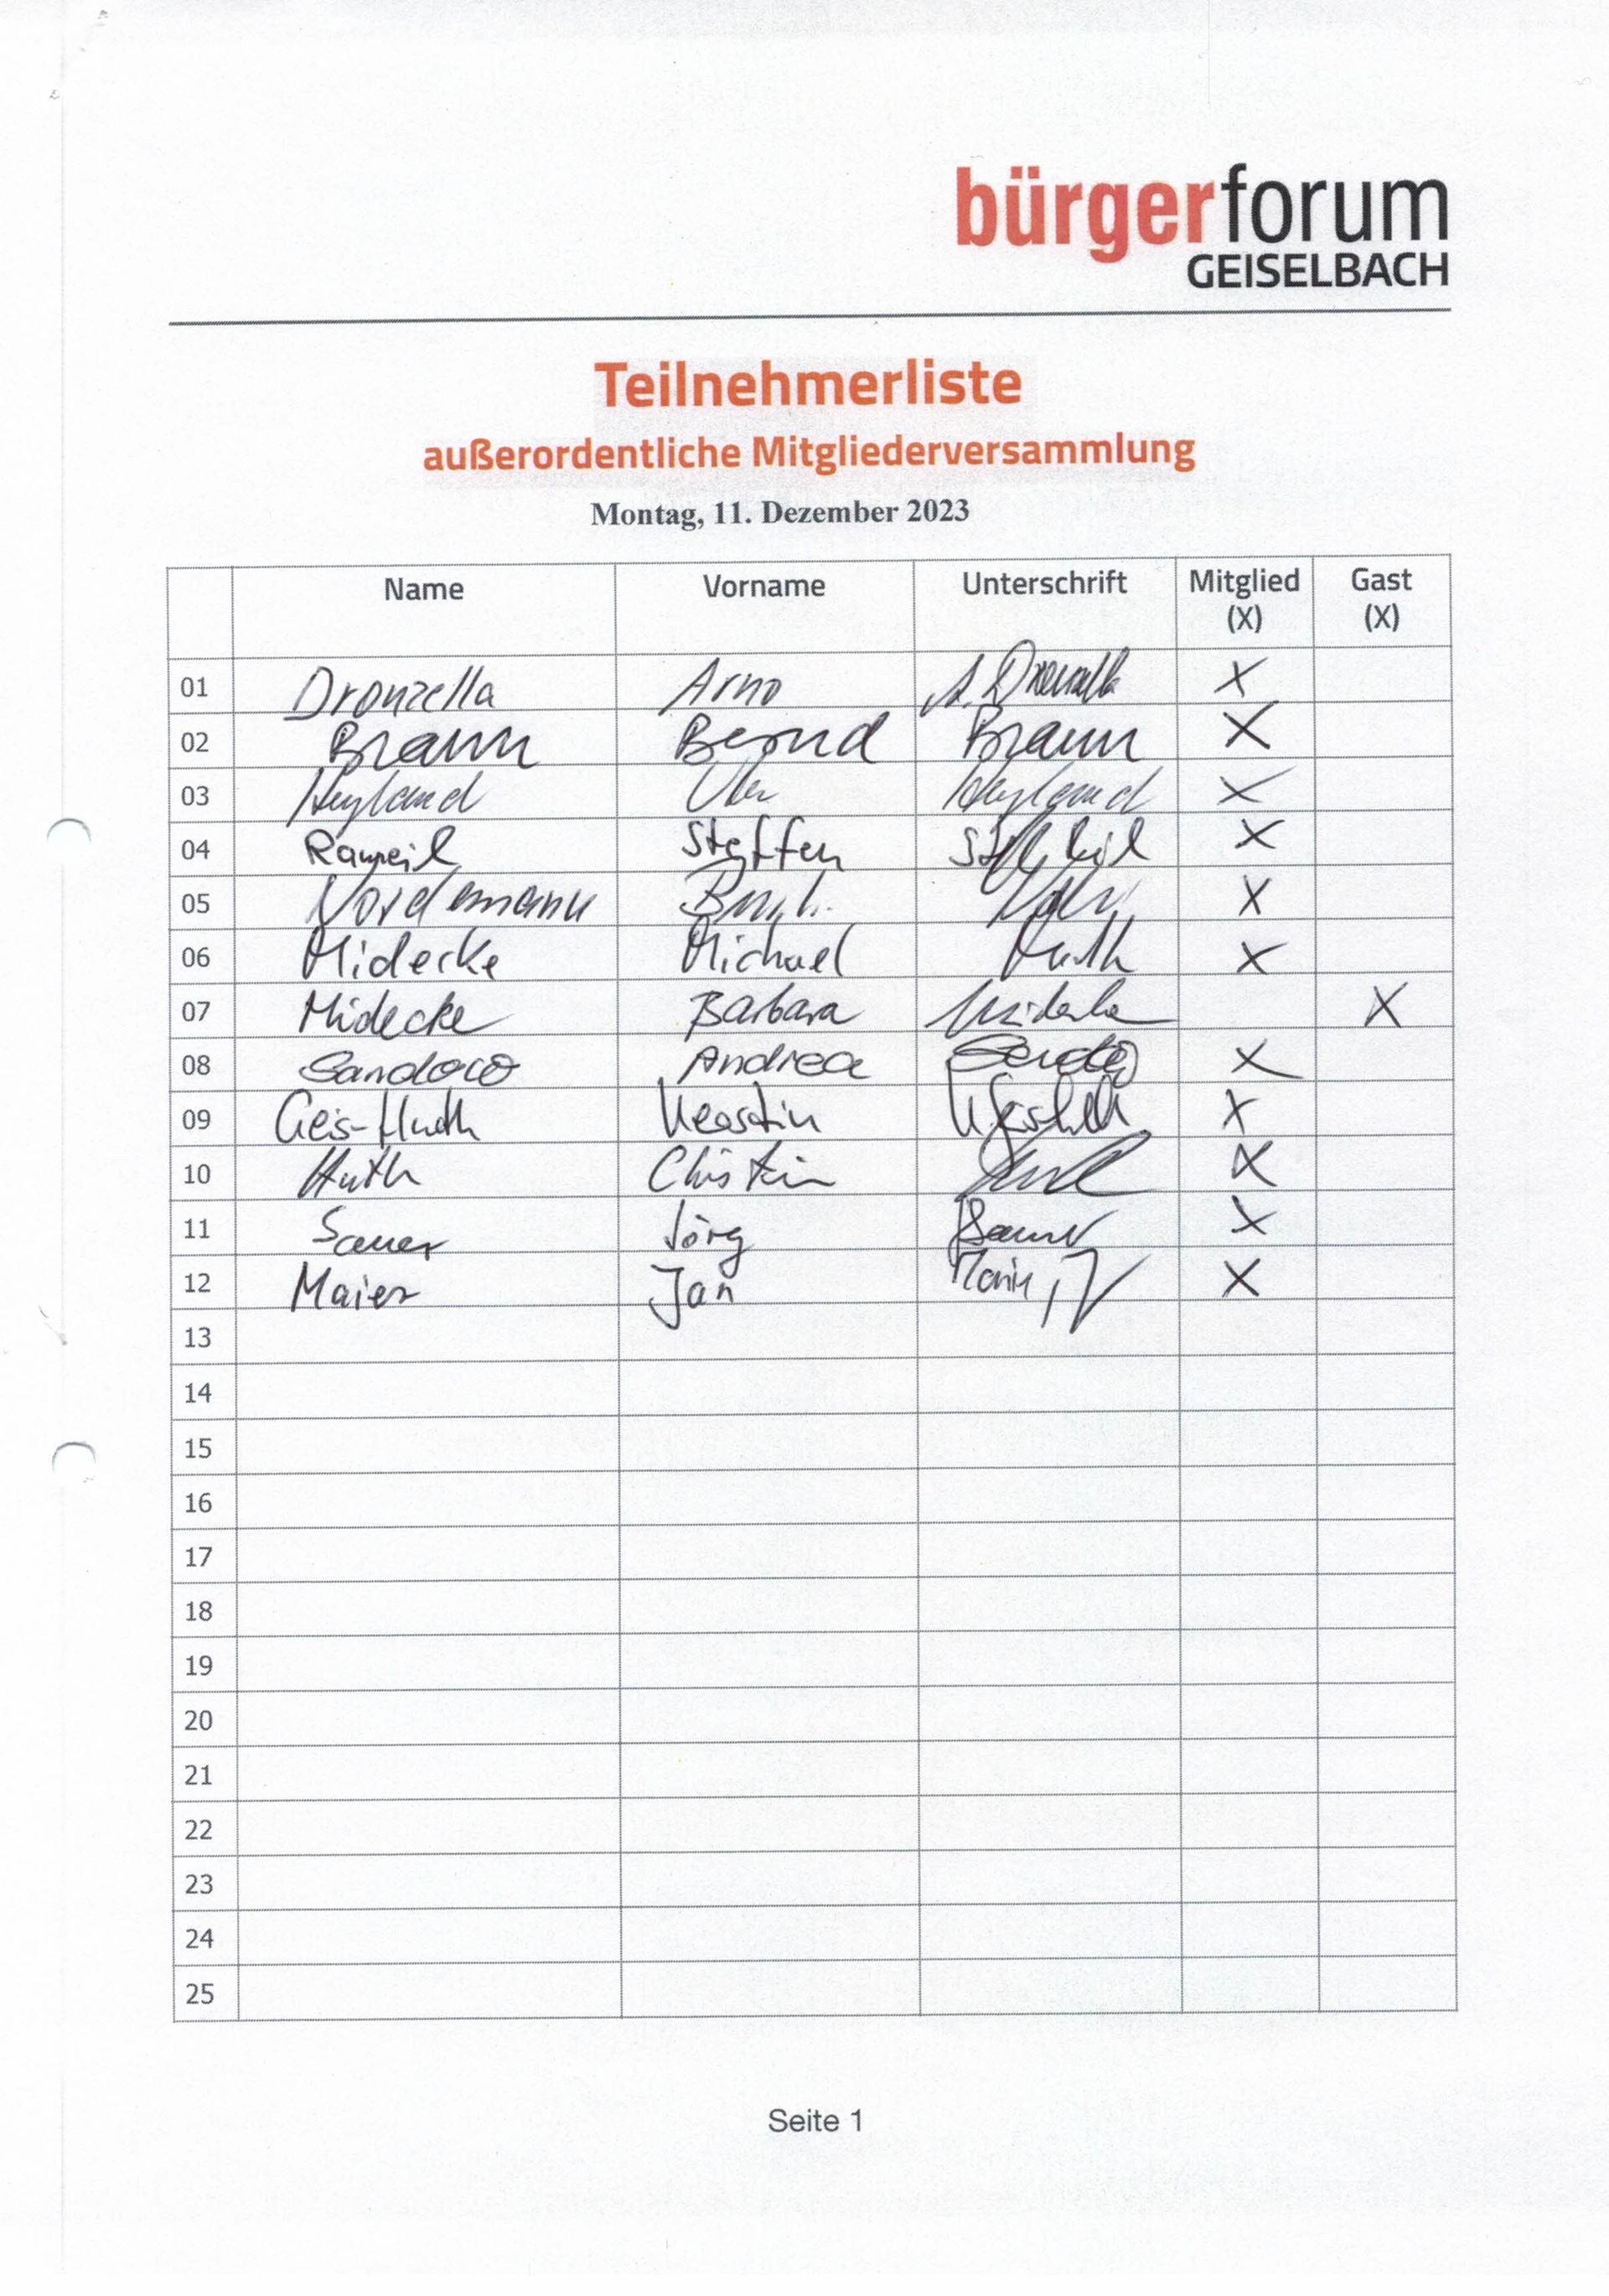 bürgerforum
GEISELBACH
Teilnehmerliste
außerordentliche Mitgliederversammlung
Montag, 11. Dezember 2023
Name Vorname Unterschrift Mitglied (X) Gast (X)
01 Dronzella Arno A. X
02 Braun Bernd Braun X
03 Heyland Heyland X
04 Steffen X
05 Nordemann X
06 Midecke Michael X
07 Midecke Barbara X
08 Andrea X
09 Geis-Huth Kerstin X
10 Huth X
11 Sauer Jörg X
12 Maier Jan X
13
14
15
16
17
18
19
20
21
22
23
24
25
Seite 1